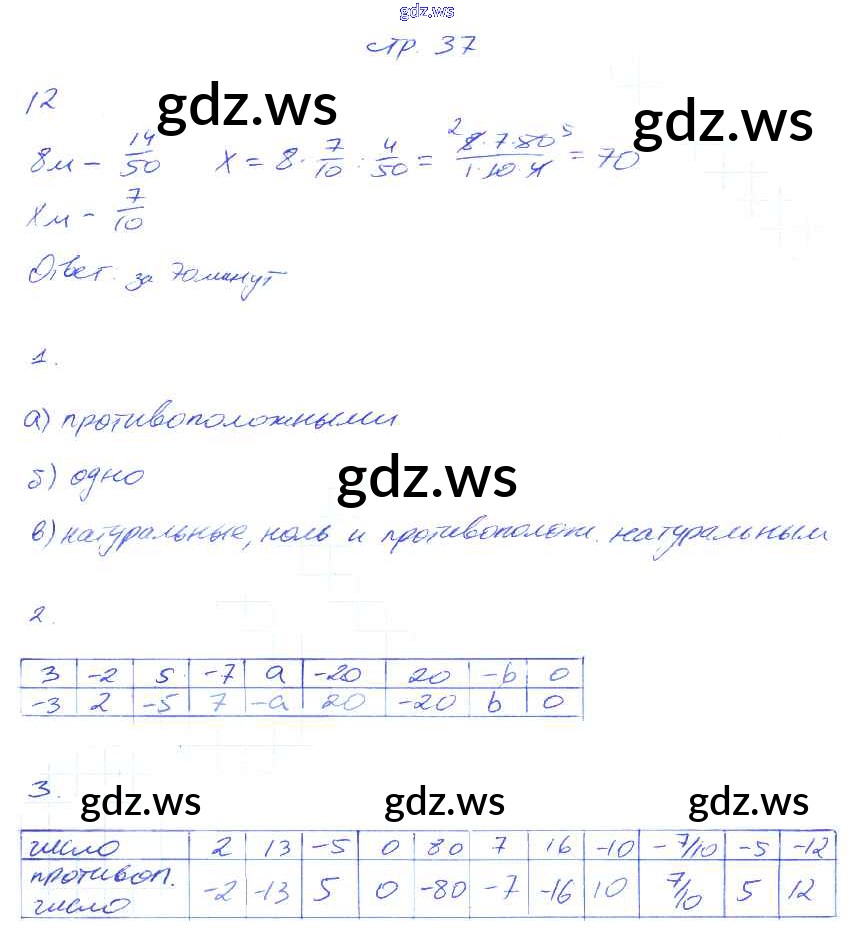 gdz.ws
стр. 37
12
gdz.ws
gdz.ws
8м - 14/50 X = 8 · 7/10 : 4/50 = 2 8·7·80 5 / 1·10·4 = 70
Xм - 7/10
Ответ: за 70 минут
1.
а) противоположными
gdz.ws
б) одно
в) натуральные, ноль и противополож. натуральным
2.
3 -2 5 -7 a -20 20 -b 0
-3 2 -5 7 -a 20 -20 b 0
3.
gdz.ws gdz.ws gdz.ws
число 2 13 -5 0 80 7 16 -10 -7/10 -5 -12
противоп. число -2 -13 5 0 -80 -7 -16 10 7/10 5 12